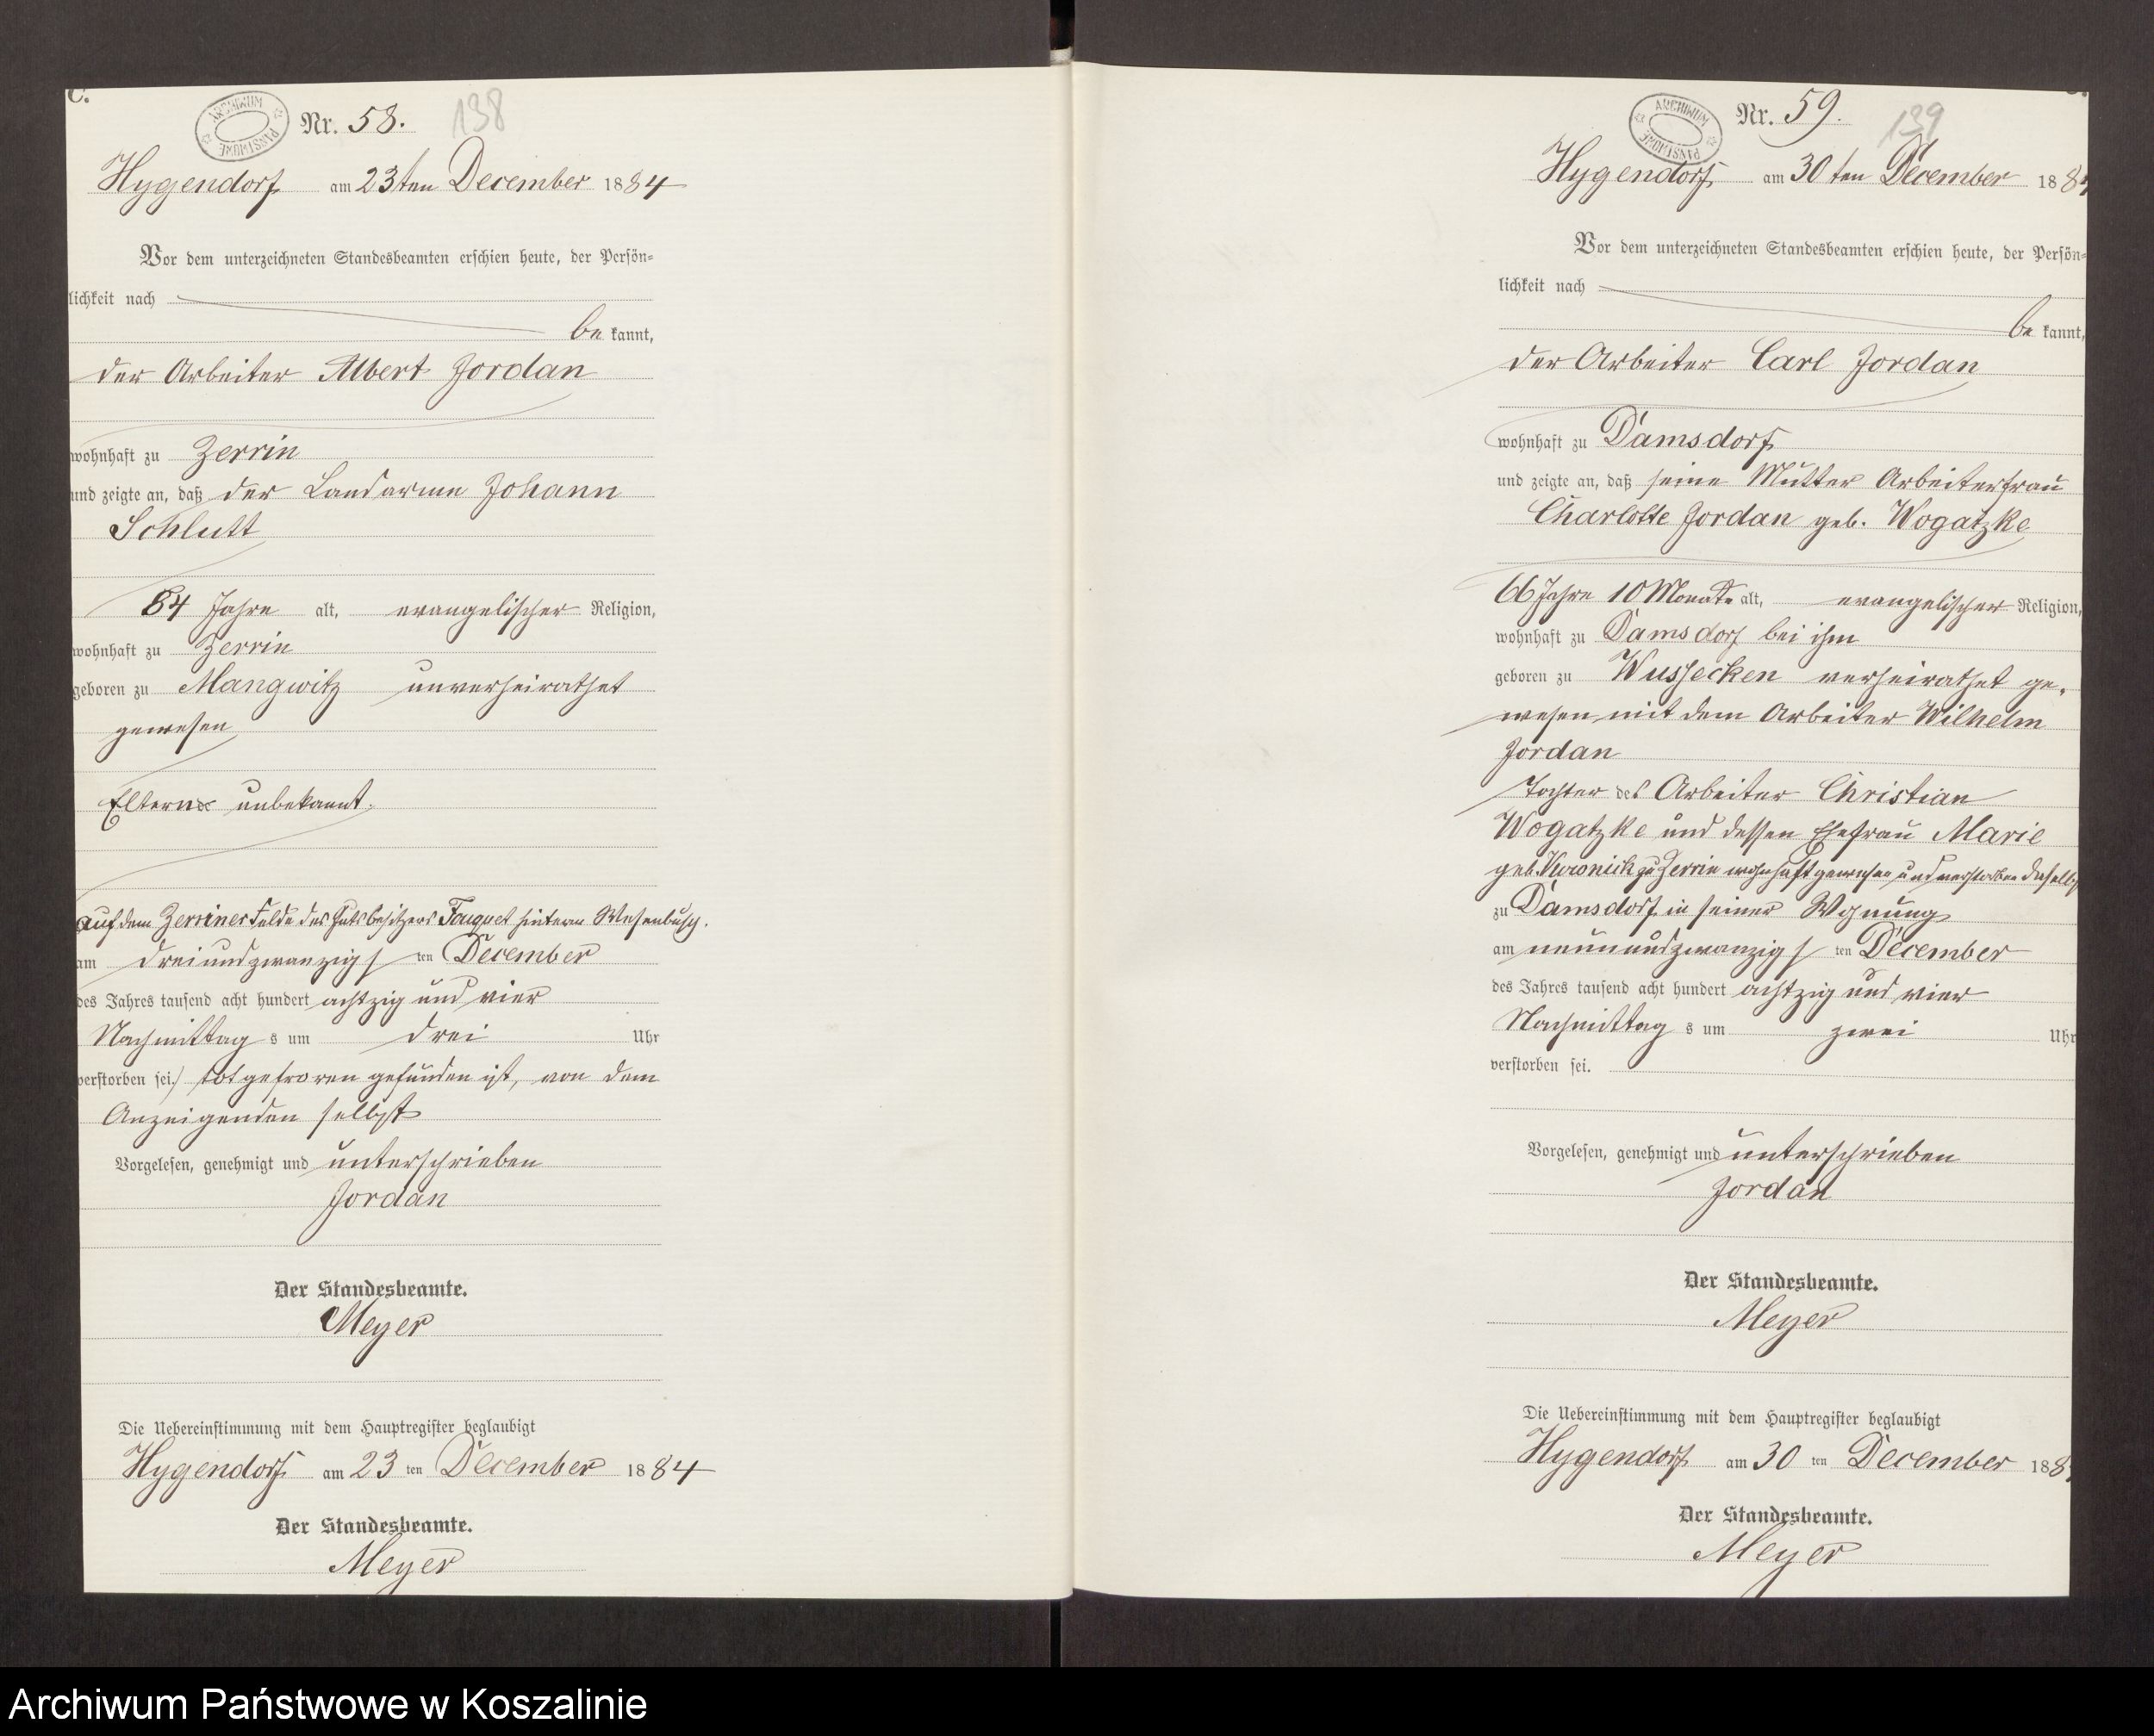 C.
ARCHIWUM PAŃSTWOWE
Nr. 58.
138
Hygendorf am 23ten December 1884
Vor dem unterzeichneten Standesbeamten erschien heute, der Persön=
lichkeit nach
be kannt,
der Arbeiter Albert Jordan
wohnhaft zu Zerrin
und zeigte an, daß der Landarme Johann
Schlutt
84 Jahre alt, evangelischer Religion,
wohnhaft zu Zerrin
geboren zu Mangwitz unverheirathet
gewesen
Eltern unbekannt.
auf dem Zerriner Felde des Gutsbesitzers Fouquet hinterm Wesenbusch.
am dreiundzwanzigs ten December
des Jahres tausend acht hundert achtzig und vier
Nachmittag s um drei Uhr
verstorben sei./ todtgefroren gefunden ist, von dem
Anzeigenden selbst
Vorgelesen, genehmigt und unterschrieben
Jordan
Der Standesbeamte.
Meyer
Die Uebereinstimmung mit dem Hauptregister beglaubigt
Hygendorf am 23 ten December 1884
Der Standesbeamte.
Meyer
ARCHIWUM PAŃSTWOWE
Nr. 59.
139
Hygendorf am 30ten December 188
Vor dem unterzeichneten Standesbeamten erschien heute, der Persön=
lichkeit nach
be kannt,
der Arbeiter Carl Jordan
wohnhaft zu Damsdorf
und zeigte an, daß seine Mutter Arbeiterfrau
Charlotte Jordan geb. Wogatzke
66 Jahre 10 Monate alt, evangelischer Religion,
wohnhaft zu Damsdorf bei ihm
geboren zu Wussecken verheirathet ge-
wesen mit dem Arbeiter Wilhelm
Jordan
Tochter des Arbeiter Christian
Wogatzke und dessen Ehefrau Marie
geb. zu Zerrin wohnhaft gewesen und verstorben daselbst
zu Damsdorf in seiner Wohnung
am neunundzwanzigs ten December
des Jahres tausend acht hundert achtzig und vier
Nachmittag s um zwei Uhr
verstorben sei.
Vorgelesen, genehmigt und unterschrieben
Jordan
Der Standesbeamte.
Meyer
Die Uebereinstimmung mit dem Hauptregister beglaubigt
Hygendorf am 30 ten December 188
Der Standesbeamte.
Meyer
Archiwum Państwowe w Koszalinie